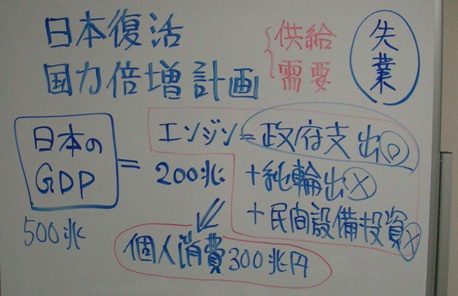 日本復活
国力倍増計画
供給
需要
失業
日本のGDP
500兆
=
エンジン=政府支出○
200兆
+純輸出×
+民間設備投資×
個人消費300兆円